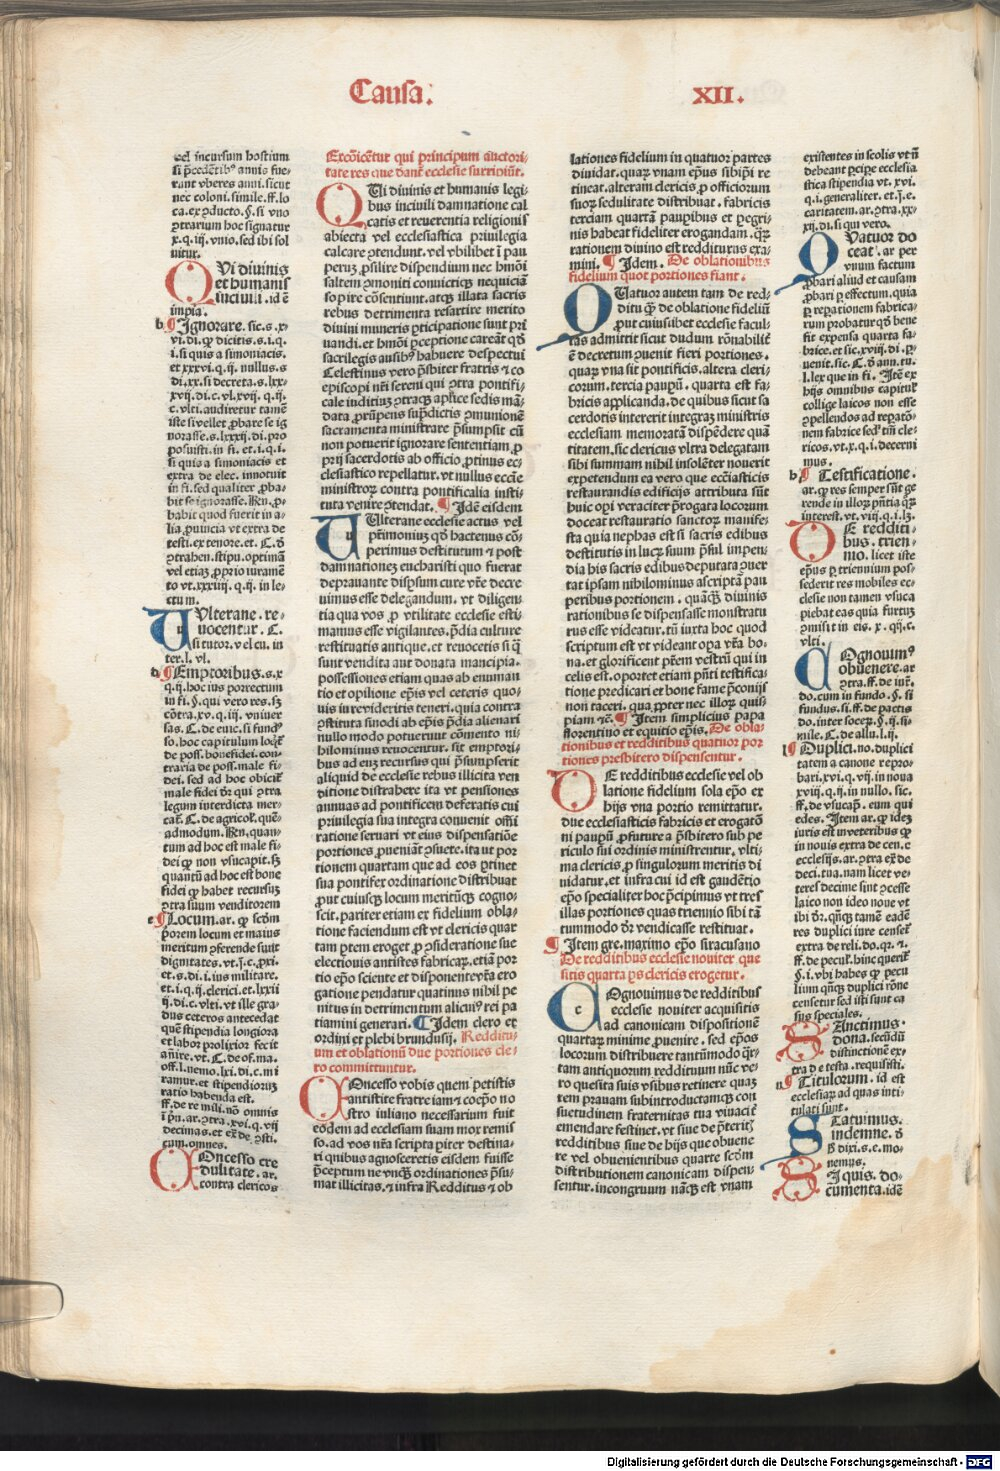 Causa. XII.
vel incursum hostium
si p̄cedētibꝰ annis fue-
runt vberes anni. sicut
nec coloni. simile. ff. lo
ca. ex ꝯducto. §. si vno
ꝯtrarium hoc signatur
x. q. iij. vnio. sed ibi sol
uitur.
QVi diuinis
et humanis
inciuili. id ē
impia.
b ¶ Ignorare. sic. s. xx
vi. di. ꝙ dicitis. s. i. q.
i. si quis a simoniacis.
et xxxvi. q. ij. nullus. s
di. xx. si decreta. s. lxx-
xvij. di. c. vl. xvij. q. ij.
c. vlti. audiretur tamē
iste si vellet ꝓbare se ig
norasse. s. lxxxij. di. pro
posuisti. in fi. et. i. q. i.
si quis a simoniacis et
extra de elec. innotuit
in fi. sed qualiter ꝓba-
bit se ignorasse. Rn̄. ꝓ-
babit quod fuerit in a-
lia ꝓuincia vt extra de
testi. ex tenore. et. C. ð
ꝯtrahen. stipu. optimā
vel etiaʒ ꝓprio iuramē
to vt. xxxiiij. q. ij. in le-
ctum.
VVlterane. re-
uocentur. C.
si tutor. vel cu. in
ter. l. vl.
b ¶ Emptoribus. s. x
q. ij. hoc ius porrectum
in fi. §. qui vero res. sʒ
cōtra. xv. q. iij. vniuer
sas. C. de euic. si fundꝰ
so. hoc capitulum loqͬ
de poss. bonefidei. con-
traria de poss. male fi-
dei. sed ad hoc obicit
male fidei ðr. qui ꝯtra
legum interdicta mer-
cat. C. de agricol. quē-
admodum. Rn̄. quan-
tum ad hoc est male fi-
dei ꝙ non vsucapit. sʒ
quantū ad hoc est bone
fidei ꝙ habet recursuʒ
ꝯtra suum venditorem
c ¶ Locum. ar. ꝙ scðm
ꝓorem locum et maius
meritum ꝯferende sunt
dignitates. vt. j. c. ꝓxi.
et. s. di. i. ius militare.
et. i. q. ij. clerici. et. lxxii
ij. di. c. vlti. vt ille gra-
dus ceteros antecedat
quē stipendia longiora
et labor prolixior fecit
añire. vt. C. de of. ma.
off. l. nemo. lxi. di. c. mi
ramur. et stipendioruʒ
ratio habenda est.
ff. de re mili. nō omnis
decimas. et
cum. omnes.
COncesso cre
dulitate. ar.
contra clericos
Excōicētur qui principum auctori-
tate res que dant ecclesie surripiūt.
QUi diuinis et humanis legi-
bus inciuili damnatione cal
catis et reuerentia religionis
abiecta vel ecclesiastica priuilegia
calcare ꝯtendunt. vel vbilibet ī pau
peruʒ ꝓsilire dispendium nec hmōi
saltem ꝯmoniti conuictiqʒ nequiciā
sopire cōsentiunt. atqʒ illata sacris
rebus detrimenta resartire merito
diuini muneris ꝑticipatione sunt pri
uandi. et hmōi ꝑceptione careāt qð
sacrilegis ausibꝰ habuere despectui
Celestinus vero p̄sbiter fratris ⁊ co
episcopi nr̄i sereni qui ꝯtra pontifi-
cale inditiuʒ ꝯtraqʒ aplice sedis mā-
data ꝓrūpens supdictis ꝯmunionē
sacramenta ministrare p̄sumpsit cū
non potuerit ignorare sententiam ꝓ
prij sacerdotis ab officio ꝓtinus ec-
clesiastico repellatur. vt nullus eccīe
ministroꝝ contra pontificalia insti-
tuta venire ꝯtendat. ¶ Idē eisdem
VUlterane ecclesie actus vel
p̄rimoniuʒ qð hactenus cō-
perimus destitutum ⁊ post
damnationeʒ eucharisti quo fuerat
deprauante disꝑsum cure vr̄e decre
uimus esse delegandum. vt diligen-
tia qua vos ꝓ vtilitate ecclesie esti-
mamus esse vigilantes. p̄dia culture
restituatis antique. et reuocetis si q̄
sunt vendita aut donata mancipia.
possessiones etiam quas ab enumau
tio et opilione ep̄is vel ceteris quo-
uis iure videritis teneri. quia contra
ꝯstituta sinodi ab ep̄is p̄dia alienari
nullo modo potuerunt cōmento ni-
hilominus reuocentur. sit emptori-
bus ad euʒ recursus qui p̄sumpserit
aliquid de ecclesie rebus illicita ven
ditione distrahere ita vt pensiones
annuas ad pontificem deferatis cui
priuilegia sua integra conuenit om̄i
ratione seruari vt eius dispensatiōe
portiones ꝓueniāt ꝯsuete. ita ut por
tionem quartam que ad eos ꝑtinet
sua pontifex ordinatione distribuat
prout cuiusqʒ locum meritūqʒ cogno-
scit. pariter etiam ex fidelium obla-
tione faciendum est vt clericis quar
tam ꝑtem eroget ꝓ ꝯsideratione sue
electionis antistes fabricaʒ. etiā por
tio ep̄o sciente et disponente vr̄a ero
gatione pendatur quatinus nihil pe
nitus in detrimentum alicuiꝰ rei pa
tiamini generari. ¶ Idem clero et
ordini et plebi brundusij. Redditu-
um et oblationū due portiones cle-
ro committuntur.
COncesso vobis quem petistis
antistite fratre iam ⁊ coep̄o no
stro iuliano necessarium fuit
eodem ad ecclesiam suam mox remis
so. ad vos nr̄a scripta piter destina-
ri quibus agnosceretis eisdem fuisse
p̄ceptum ne vnqʒ ordinationes p̄su-
mat illicitas. ⁊ infra Redditus ⁊ ob
lationes fidelium in quatuor partes
diuidat. quaꝝ vnam ep̄us sibip̄i re
tineat. alteram clericis ꝓ officiorum
suoꝝ sedulitate distribuat. fabricis
terciam quartā paupibus et ꝑegri-
nis habeat fideliter erogandam. qꝝ
rationem diuino est redditurus exa-
mini. ¶ Idem. De oblationibus
fidelium quot portiones fiant.
QUatuor autem tam de red-
ditu ꝙ de oblatione fideliū
ꝓut cuiusibet ecclesie facul-
tas admittit sicut dudum rōnabilit̄
ē decretum ꝯuenit fieri portiones.
quaꝝ vna sit pontificis. altera cleri-
corum. tercia paupū. quarta est fa-
bricis applicanda. de quibus sicut sa
cerdotis intererit integraʒ ministris
ecclesiam memoratā dispēdere quā
titatem. sic clericus vltra delegatam
sibi summam nihil insolēter nouerit
expetendum ea vero que ecc̄iasticis
restaurandis edificijs attributa sūt
huic opi veraciter p̄rogata locorum
doceat restauratio sanctoꝝ manife-
sta quia nephas est si sacris edibus
destitutis in lucꝝ suum p̄sul impen-
dia his sacris edibus deputata ꝯuer
tat ipsam nihilominus ascriptā pau
peribus portionem. quāqʒ diuinis
rationibus se dispensasse monstratu
rus esse videatur. tū iuxta hoc quod
scriptum est vt videant opa vr̄a bo-
na. et glorificent p̄rem vestrū qui in
celis est. oportet etiam p̄nti testifica-
tione predicari et bone fame p̄conijs
non taceri. qua ꝓpter nec illoꝝ quis-
piam ⁊c. ¶ Item simplicius papa
florentino et equitio ep̄is. De obla-
tionibus et redditibus quatuor por
tiones presbitero dispensentur.
DE redditibus ecclesie vel ob
latione fidelium sola ep̄o ex
hijs vna portio remittatur.
due ecclesiasticis fabricis et erogatō
ni paupū ꝓfuture a p̄sbitero sub pe
riculo sui ordinis ministrentur. vlti-
ma clericis ꝓ singulorum meritis di
uidatur. et infra cui id est gaudētio
ep̄o specialiter hoc p̄cipimus vt tres
illas portiones quas triennio sibi tā
tummodo ðr vendicasse restituat.
¶ Item gre. maximo ep̄o siracusano
De redditibus ecclesie nouiter que
sitis quarta ps clericis erogetur.
COgnouimus de redditibus
ecclesie nouiter acquisitis
ad canonicam dispositionē
quartaꝝ minime ꝓuenire. sed ep̄os
locorum distribuere tantūmodo qr̄-
tam antiquorum reddituum nūc ve-
ro quesita suis vsibus retinere quaʒ
rem prauam subintroductamqʒ con
suetudinem fraternitas tua viuacit̄
emendare festinet. vt siue de p̄terit̄
redditibus siue de hijs que obuene
re vel obuenientibus quarte scðm
distributionem canonicam dispen-
sentur. incongruum nāqʒ est vnam
existentes in scolis vt nō
debeant ꝑcipe ecclesia
stica stipendia vt. xvi.
q. i. generaliter. et. j. e.
caritatem. ar. ꝯtra. xx-
xij. di. si qui vero.
QVatuor do
ceat. ar per
vnum factum
ꝓbari aliud et causam
ꝓbari p effectum. quia
p reparationem fabrica-
rum probatur qð bene
fit expensa quarta fa-
brice. et sic. xviij. di. ꝑ-
uenit. sic. C. ð ann. tu.
l. lex que in fi. Itē ex
hijs omnibus capitul̓
collige laicos non esse
ꝯpellendos ad repatō-
nem fabrice sed tm̄ cle-
ricos. vt. x. q. i. decerni
mus.
b ¶ Testificatione.
ar. ꝙ res semper sūt ge
rende in illoꝝ pn̄tia qͬ
interest. vt. viij. q. i. lʒ.
DE redditi-
bus. trien-
nio. licet iste
ep̄us p triennium pos-
sederit res mobiles ec-
clesie non tamen vsuca
piebat eas quia furtuʒ
ꝯmisit in eis. x. q. ij. c.
vlti.
COgnouimꝰ
obuenere. ar
ꝯtra. ff. de iur.
do. cum in fundo. §. si
fundus. si. ff. de pactis
do. inter soceꝝ. §. ij. si-
mile. C. de allu. l. ij.
l ¶ Duplici. no. duplici
tatem a canone repro-
bari. xvi. q. vij. in noua
xviij. q. ij. in nullo. sic.
ff. de vsucap. eum qui
edes. Item ar. ꝙ ideʒ
iuris est in veteribus ꝙ
in nouis extra de cen. c
ecclesijs. ar. ꝯtra ex̄ de
deci. tua. nam licet ve-
teres decime sint ꝯcesse
laico non ideo noue vt
ibi ðr. qn̄qʒ tamē eadē
res duplici iure censet̄
extra de reli. do. qꝝ. ⁊.
ff. de pecul. hinc querit̄
§. i. vbi habes ꝙ pecu
lium qn̄qʒ duplici rōne
censetur sed isti sunt ca
sus speciales.
SAnctimus.
dona. secūdū
distinctionē ex-
tra de testa. requisisti.
n ¶ Titulorum. id est
ecclesiaꝝ ad quas inti-
tulati sunt.
STatuimus.
indemne. ð
dixi. s. e. mo-
nemus.
SI quis. do-
cumenta. idē
Digitalisierung gefördert durch die Deutsche Forschungsgemeinschaft - DFG